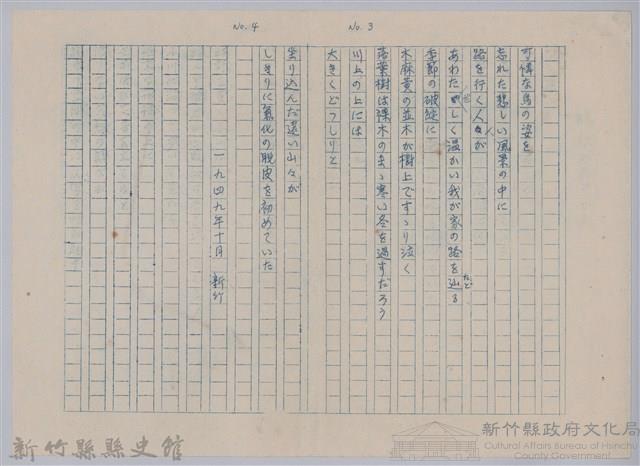 No. 3
可憐な鳥の姿を
忘れた悲しい風景の中に
路を行く人々が
あわただしく温かい我が家の路を辿る
たど
季節の破綻に
木麻黄の並木が樹上ですゝり泣く
落葉樹は裸木のまゝ寒い冬を過すだろう
川上の上には
大きくどっしりと
No. 4
坐り込んだ遠い山々が
しきりに氣化の脱皮を初めていた
一九四九年十月 新竹
新竹縣縣史館
新竹縣政府文化局
Cultural Affairs Bureau of Hsinchu
County Government